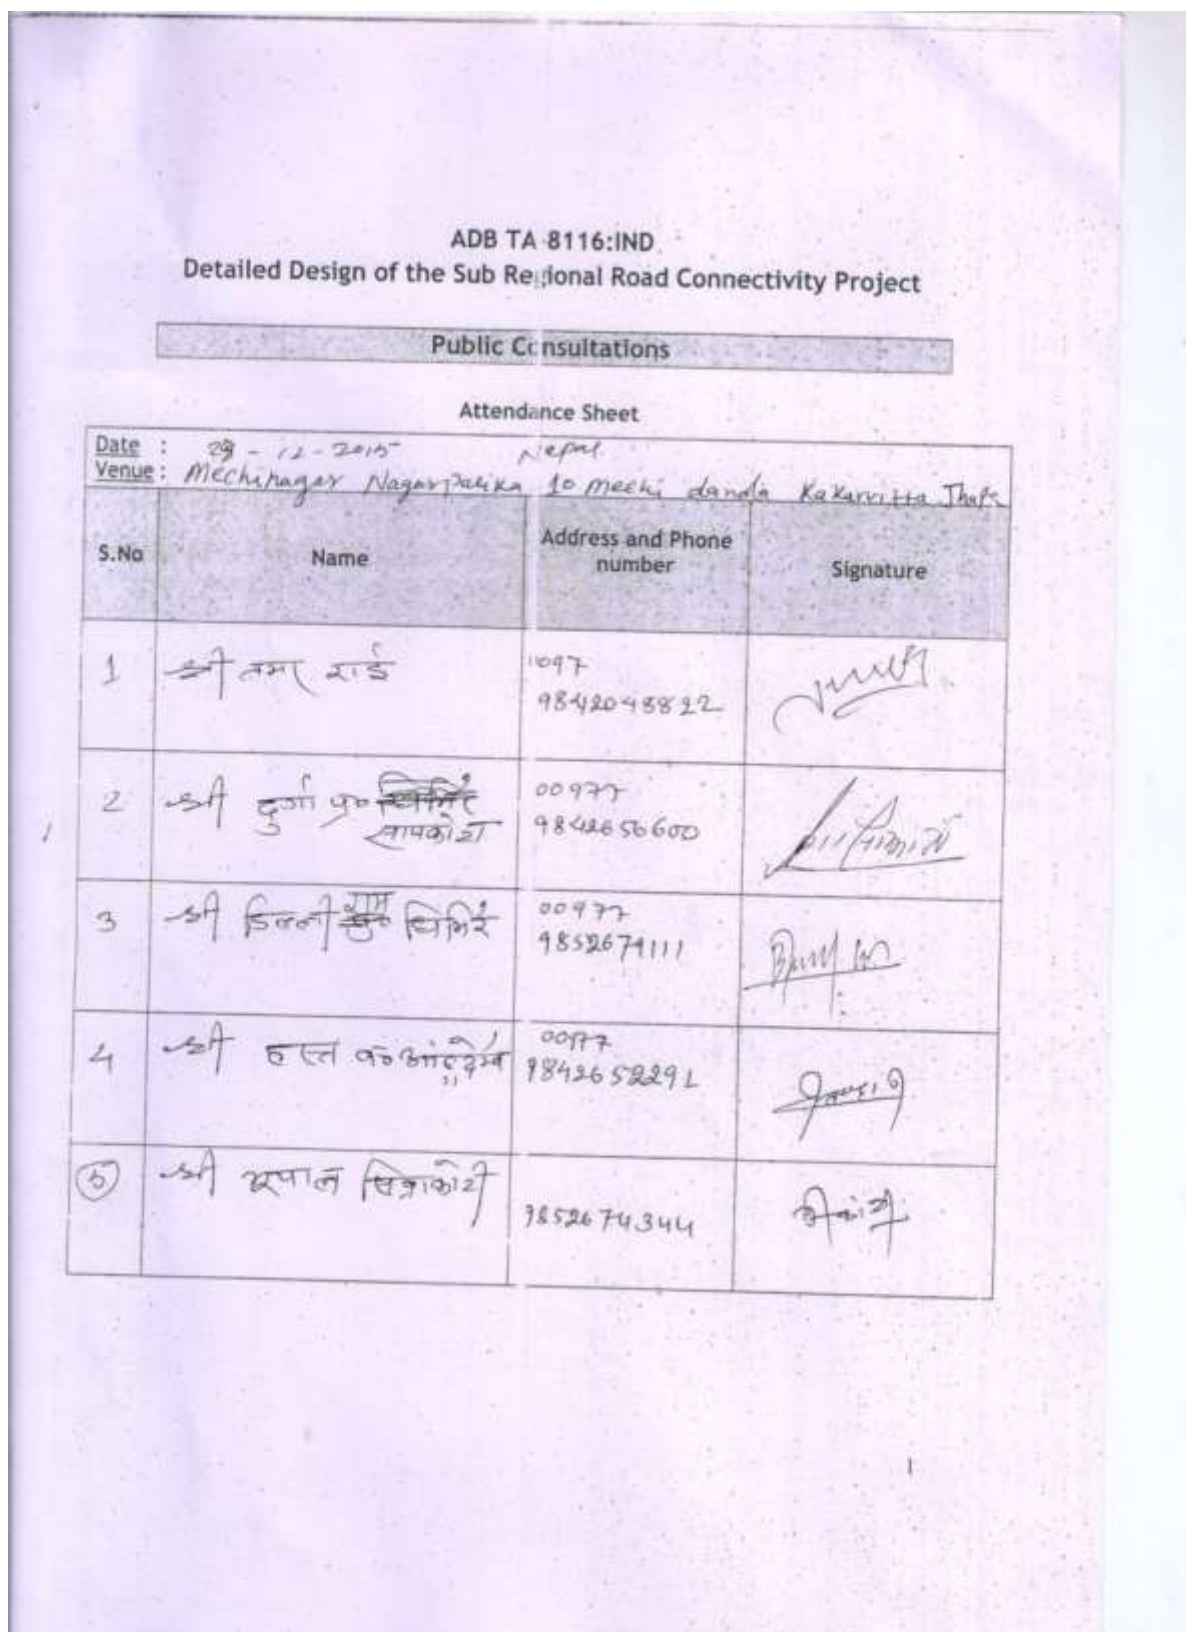 ADB TA 8116:IND
Detailed Design of the Sub Regional Road Connectivity Project
Public Consultations
Attendance Sheet
Date : 29-12-2015 Nepal
Venue: Mechinagar Nagarpalika 10 mechi danda Kakarvitta Jhapa
S.No Name Address and Phone number Signature
1 श्री राई
9842048822
2 श्री दुर्गा प्र० घिमिरे
सापकोटा
00977
9842656600
3 श्री डिल्ली राम घिमिरे
00977
9852679111
4 श्री हस्त ब०
00977
9842652291
5 श्री भूपाल चित्राकोटी
9852674344
1